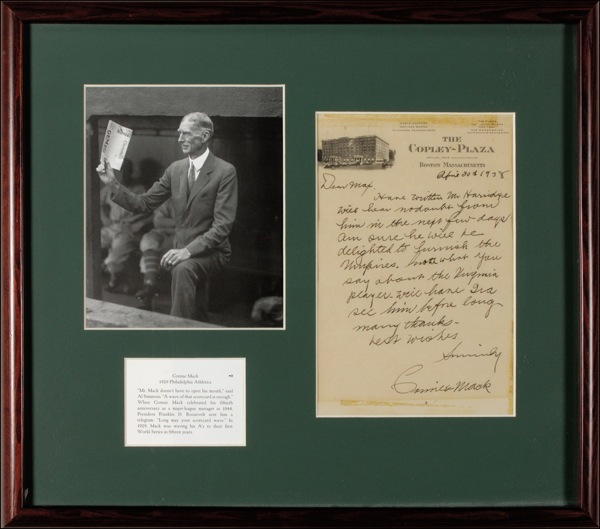 THE
COPLEY-PLAZA
BOSTON MASSACHUSETTS
April 20th 1938
Dear Max,
Have written Mr Harridge
will hear no doubt from
him in the next few days
am sure he will be
delighted to furnish the
Umpires. note what you
say about the Virginia
player will have Ira
see him before long
many thanks-
best wishes
Sincerely
Connie Mack
Connie Mack
1929 Philadelphia Athletics
"Mr. Mack doesn't have to open his mouth," said
Al Simmons. "A wave of that scorecard is enough."
When Connie Mack celebrated his fiftieth
anniversary as a major-league manager in 1944,
President Franklin D. Roosevelt sent him a
telegram: "Long may your scorecard wave." In
1929, Mack was waving his A's to their first
World Series in fifteen years.